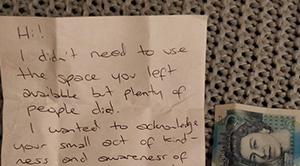 Hi!
I didn't need to use
the space you left
available but plenty of
people did.
I wanted to acknowledge
your small act of kind-
ness and awareness of